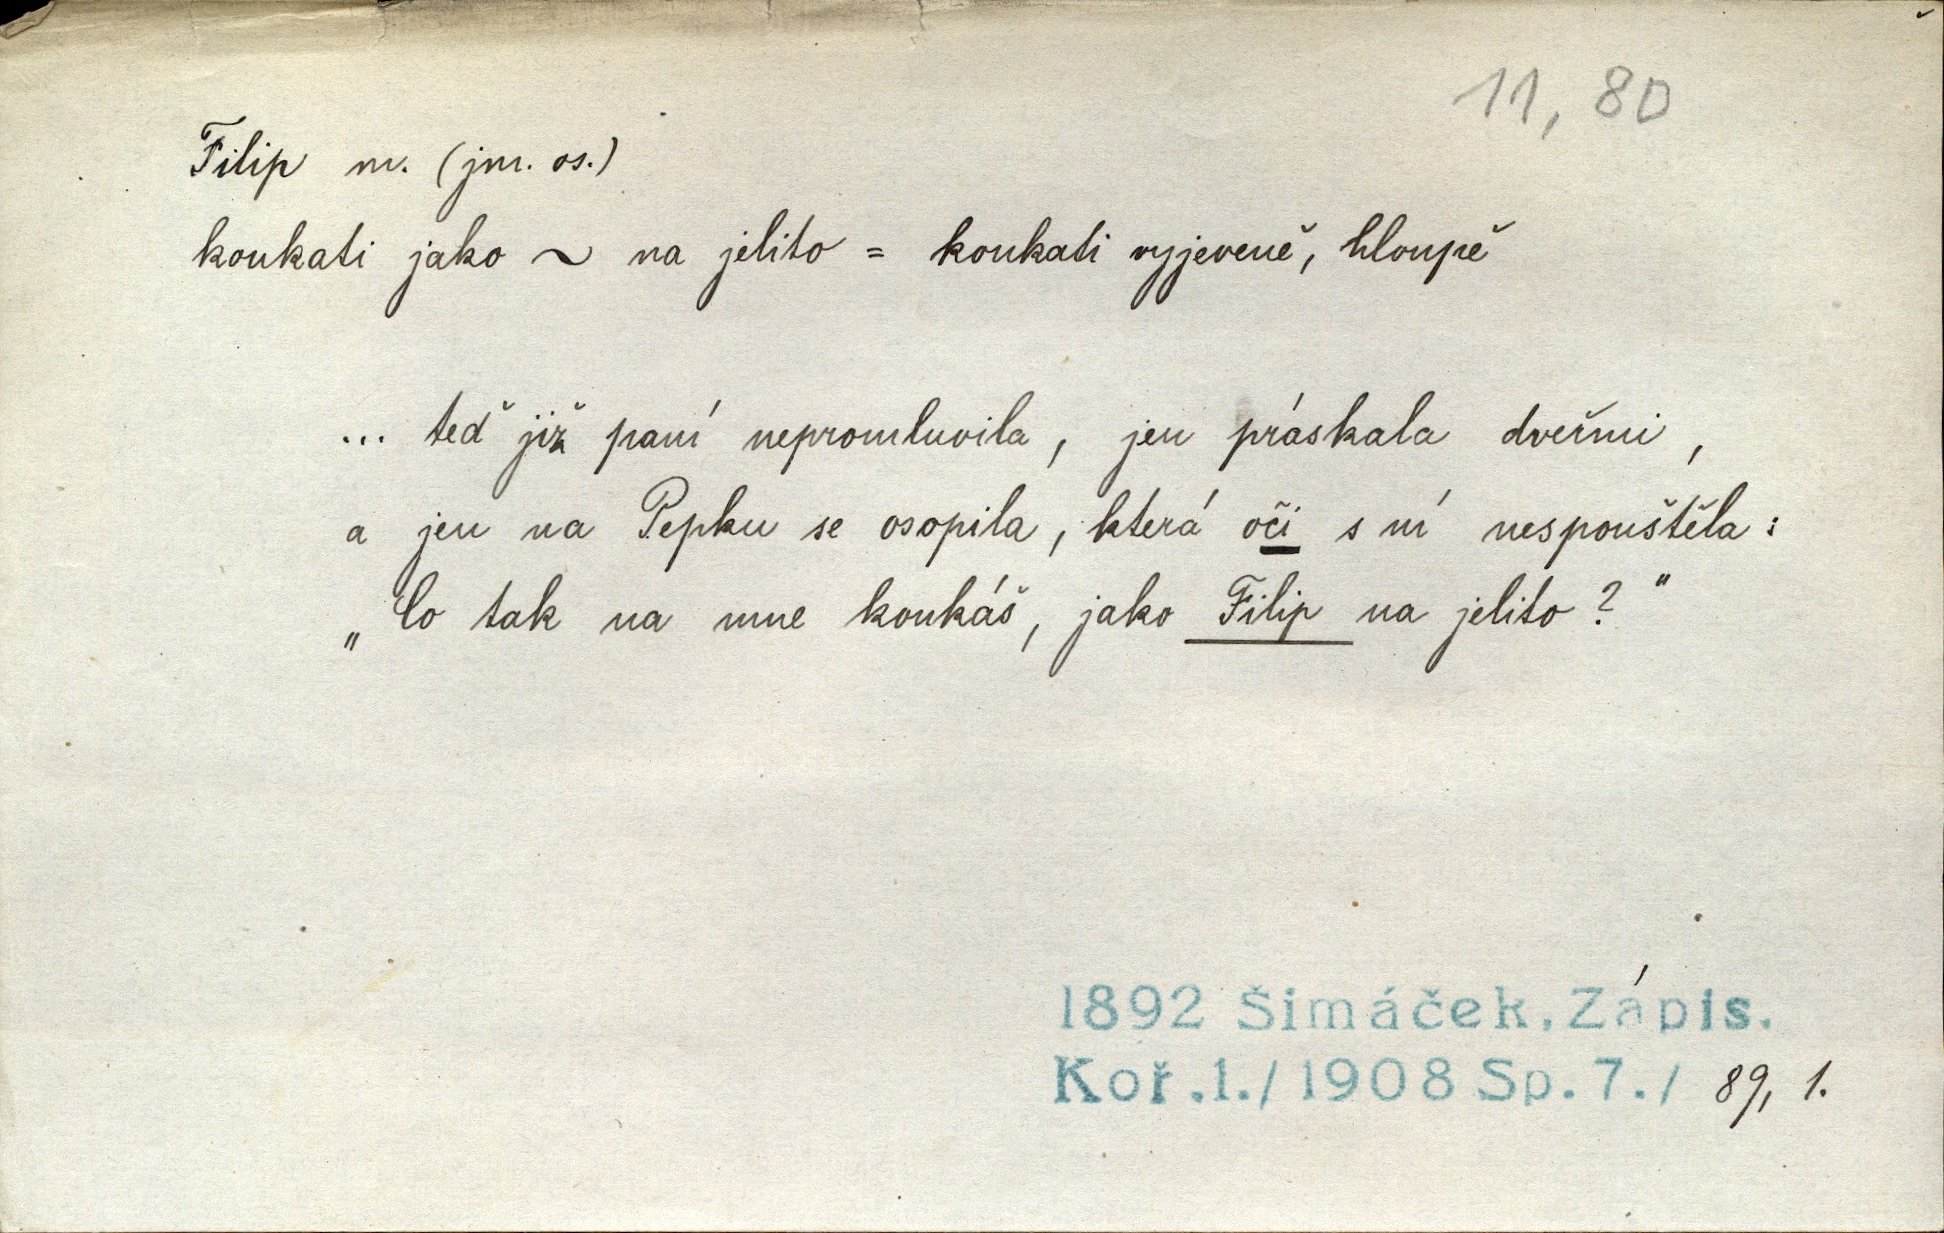 11, 80
Filip m. (jm. os.)
koukati jako ~ na jelito = koukati vyjeveně, hloupě
... teď již paní nepromluvila, jen práskala dveřmi,
a jen na Pepku se osopila, která oči s ní nespouštěla:
„Co tak na mne koukáš, jako Filip na jelito?"
1892 Šimáček, Zápis.
Koř.1./1908 Sp.7./ 89, 1.